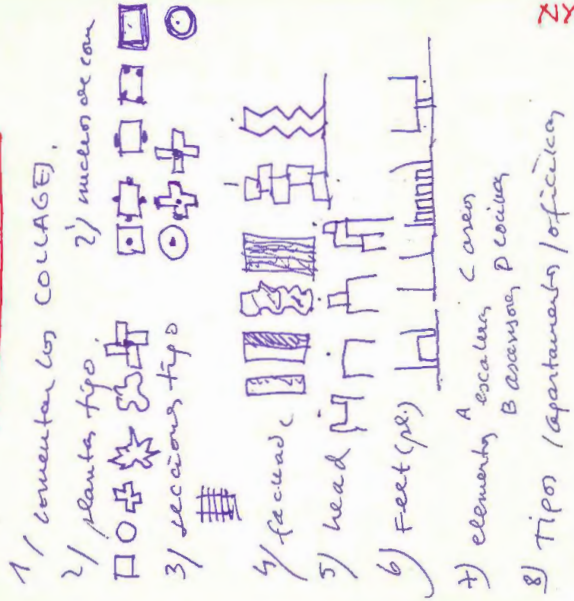 NY
1/ comentar los COLLAGES.
2/ plantas tipo.
2') nucleos de com
3/ secciones tipo
4/ facade
5/ head
6/ Feet (pe.)
7) elementos A escaleras C aseos
B ascensores D cocinas
8) Tipos / apartamentos / oficinas